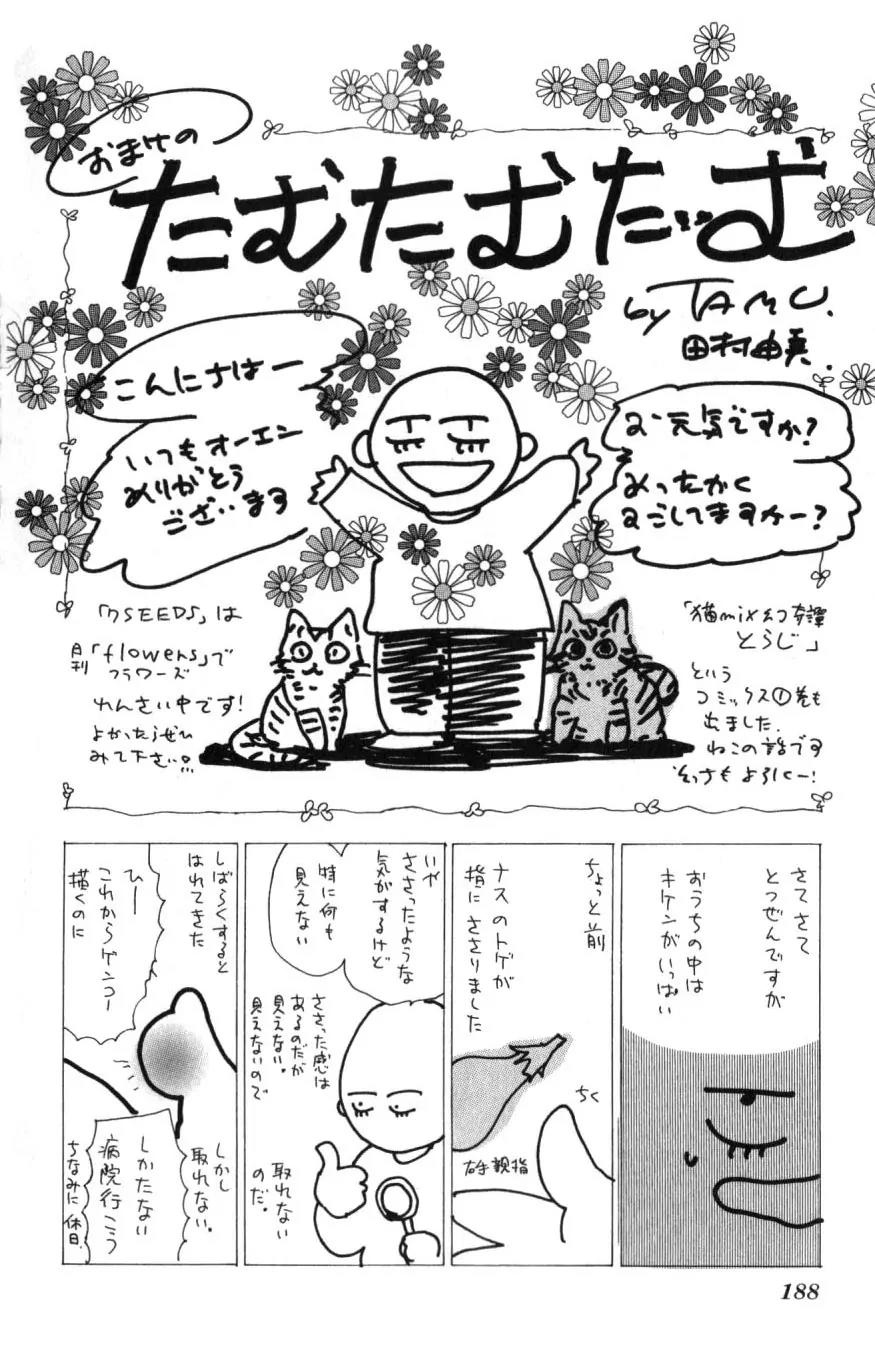 おまけの
たむたむたいむ
by TAMU.
田村由美
こんにちはー
いつもオーエン
ありがとう
ございます
お元気ですか?
あったかく
すごしてますかー?
「7SEEDS」は
月刊「flowers」で
フラワーズ
れんさい中です!
よかったらぜひ
みて下さい!
「猫mix幻奇譚
とらじ」
という
コミックス①巻も
出ました.
ねこの話です
そっちもよろしくー!
さてさて
とつぜんですが
おうちの中は
キケンがいっぱい
ちょっと前
ナスのトゲが
指にささりました
ちく
右手親指
いや
ささったような
気がするけど
特に何も
見えない
ささった感は
あるのだが
見えない。
見えないので
取れない
のだ。
しばらくすると
はれてきた
ひー
これからゲンコー
描くのに
しかし
取れない。
しかたない
病院行こう
ちなみに休日.
188